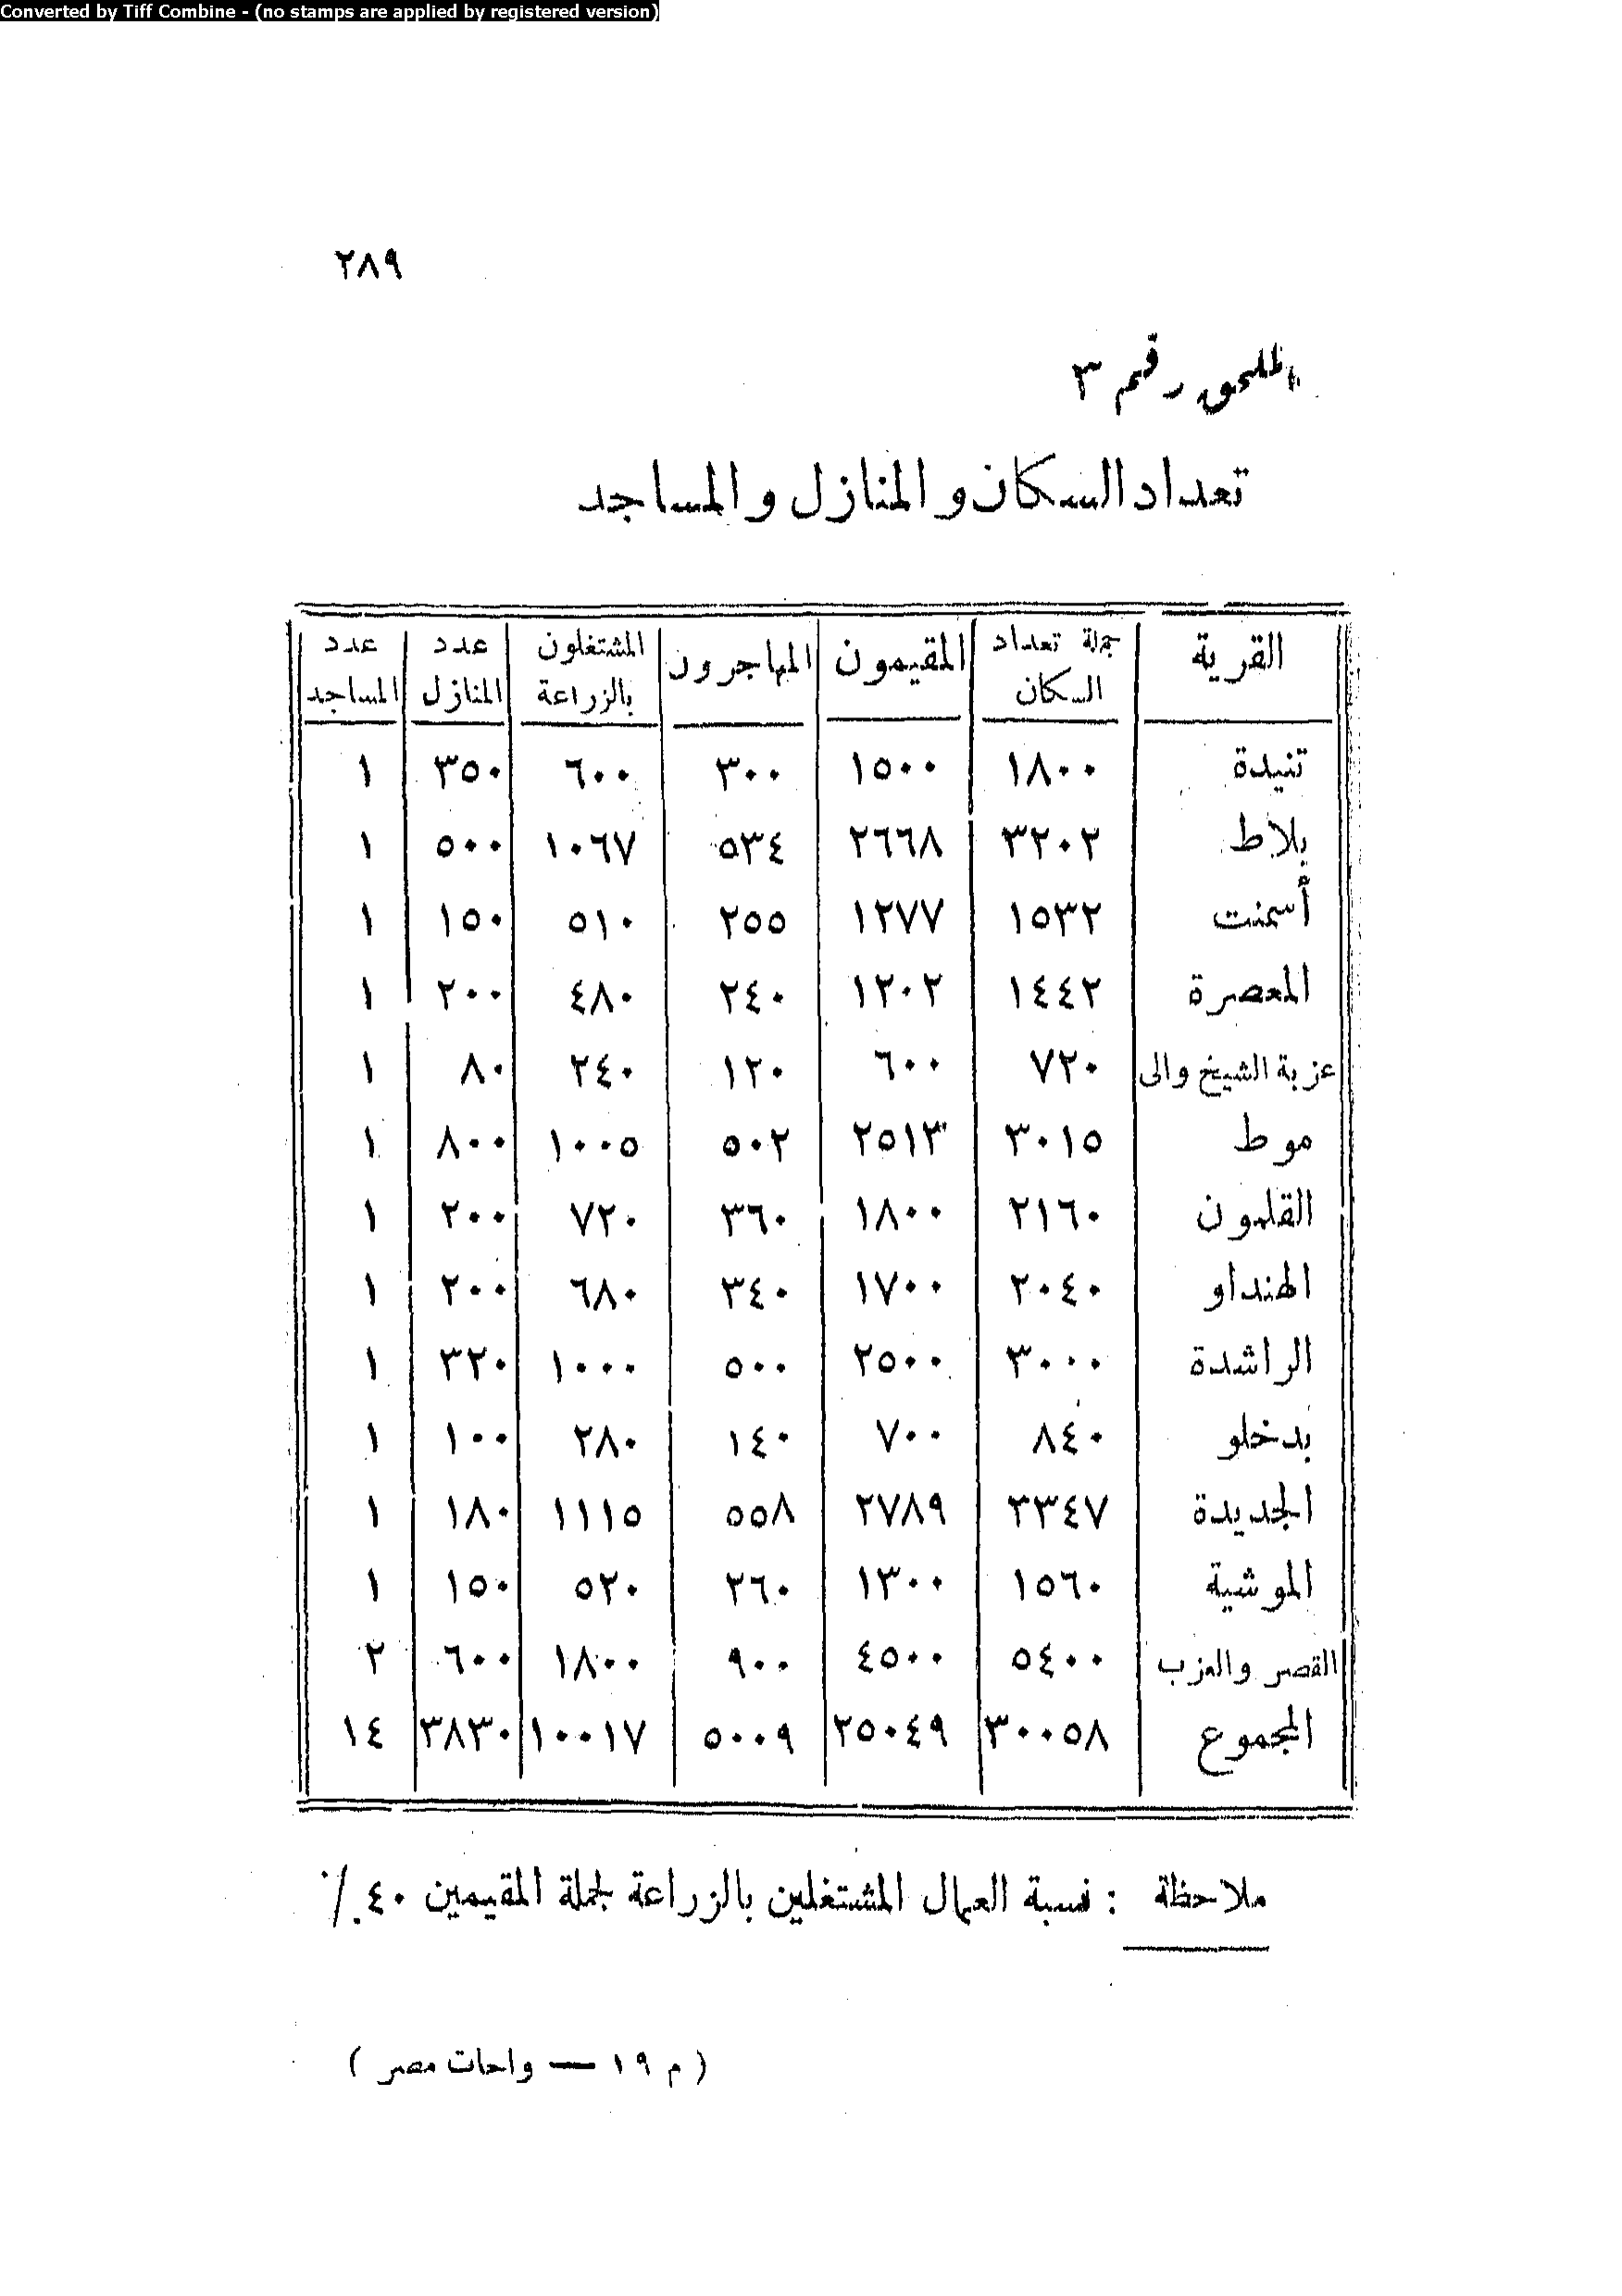 Converted by Tiff Combine - (no stamps are applied by registered version)
٢٨٩
الملحق رقم ٣
تعداد السكان والمنازل والمساجد
القرية | جملة تعداد السكان | المقيمون | المهاجرون | المشتغلون بالزراعة | عدد المنازل | عدد المساجد
تنيدة | ١٨٠٠ | ١٥٠٠ | ٣٠٠ | ٦٠٠ | ٣٥٠ | ١
بلاط | ٣٢٠٢ | ٢٦٦٨ | ٥٣٤ | ١٠٦٧ | ٥٠٠ | ١
أسمنت | ١٥٣٢ | ١٢٧٧ | ٢٥٥ | ٥١٠ | ١٥٠ | ١
المعصرة | ١٤٤٢ | ١٢٠٢ | ٢٤٠ | ٤٨٠ | ٢٠٠ | ١
عزبة الشيخ والى | ٧٢٠ | ٦٠٠ | ١٢٠ | ٢٤٠ | ٨٠ | ١
موط | ٣٠١٥ | ٢٥١٣ | ٥٠٢ | ١٠٠٥ | ٨٠٠ | ١
القلمون | ٢١٦٠ | ١٨٠٠ | ٣٦٠ | ٧٢٠ | ٢٠٠ | ١
الهنداو | ٢٠٤٠ | ١٧٠٠ | ٣٤٠ | ٦٨٠ | ٢٠٠ | ١
الراشدة | ٣٠٠٠ | ٢٥٠٠ | ٥٠٠ | ١٠٠٠ | ٣٢٠ | ١
بدخلو | ٨٤٠ | ٧٠٠ | ١٤٠ | ٢٨٠ | ١٠٠ | ١
الجديدة | ٣٣٤٧ | ٢٧٨٩ | ٥٥٨ | ١١١٥ | ١٨٠ | ١
الموشية | ١٥٦٠ | ١٣٠٠ | ٢٦٠ | ٥٢٠ | ١٥٠ | ١
القصر والعزب | ٥٤٠٠ | ٤٥٠٠ | ٩٠٠ | ١٨٠٠ | ٦٠٠ | ٢
المجموع | ٣٠٠٥٨ | ٢٥٠٤٩ | ٥٠٠٩ | ١٠٠١٧ | ٣٨٣٠ | ١٤
ملاحظة : نسبة العمال المشتغلين بالزراعة لجملة المقيمين ٤٠٪
(م ١٩ — واحات مصر)